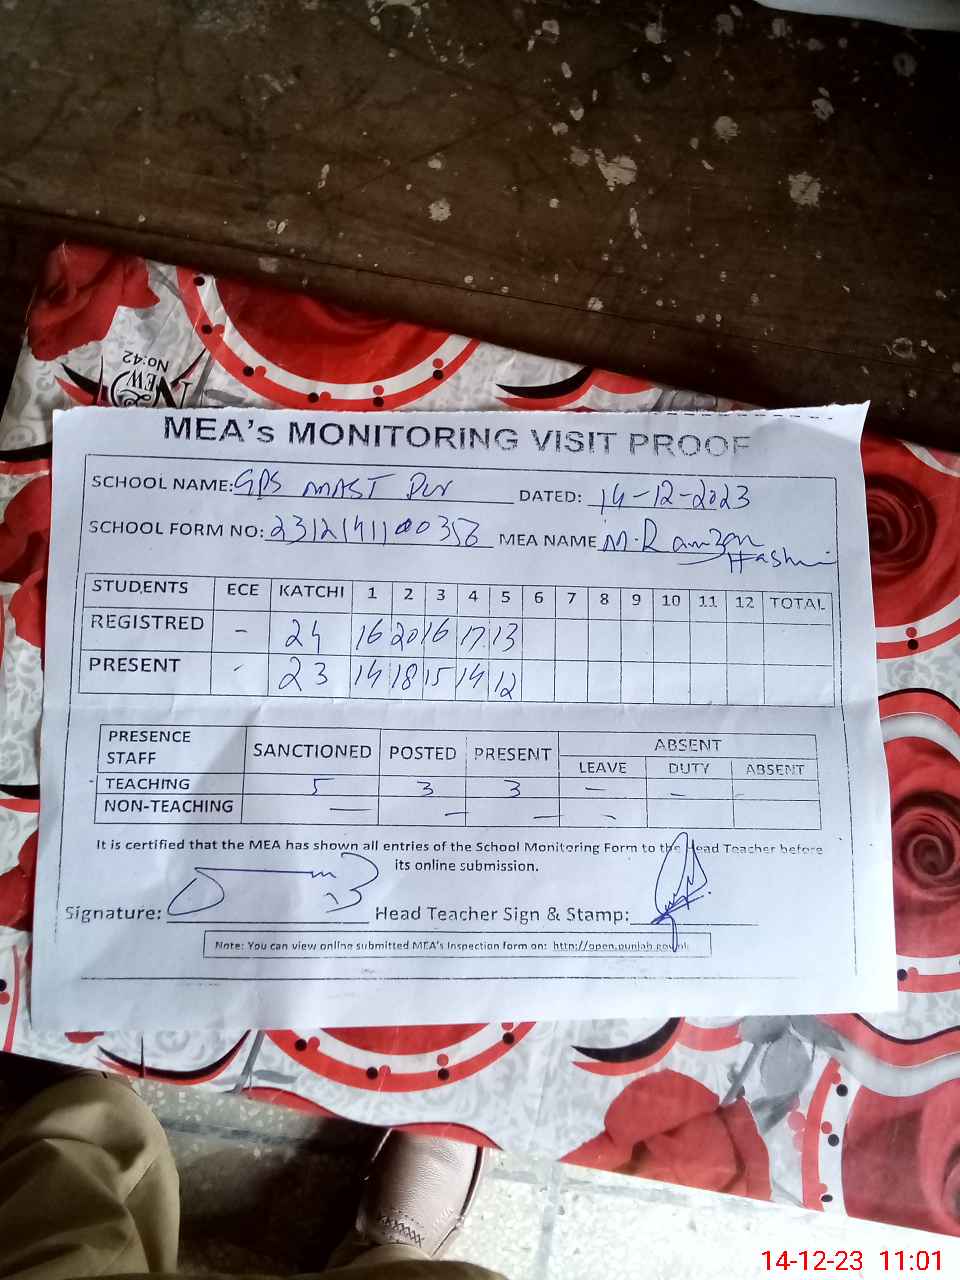 No:42
NEW
MEA's MONITORING VISIT PROOF
SCHOOL NAME: GPS MAST DATED: 14-12-2023
SCHOOL FORM NO: MEA NAME M.Ramzan
Hashmi
STUDENTS ECE KATCHI 1 2 3 4 5 6 7 8 9 10 11 12 TOTAL
REGISTRED - 24 16 20 16 17 13
PRESENT - 23 14 18 15 14 12
PRESENCE STAFF SANCTIONED POSTED PRESENT ABSENT
LEAVE DUTY ABSENT
TEACHING 5 3 3 - -
NON-TEACHING - - - -
It is certified that the MEA has shown all entries of the School Monitoring Form to the Head Teacher before
its online submission.
Signature: Head Teacher Sign & Stamp:
Note: You can view online submitted MEA's Inspection form on: http://open.punjab.gov.pk
14-12-23 11:01